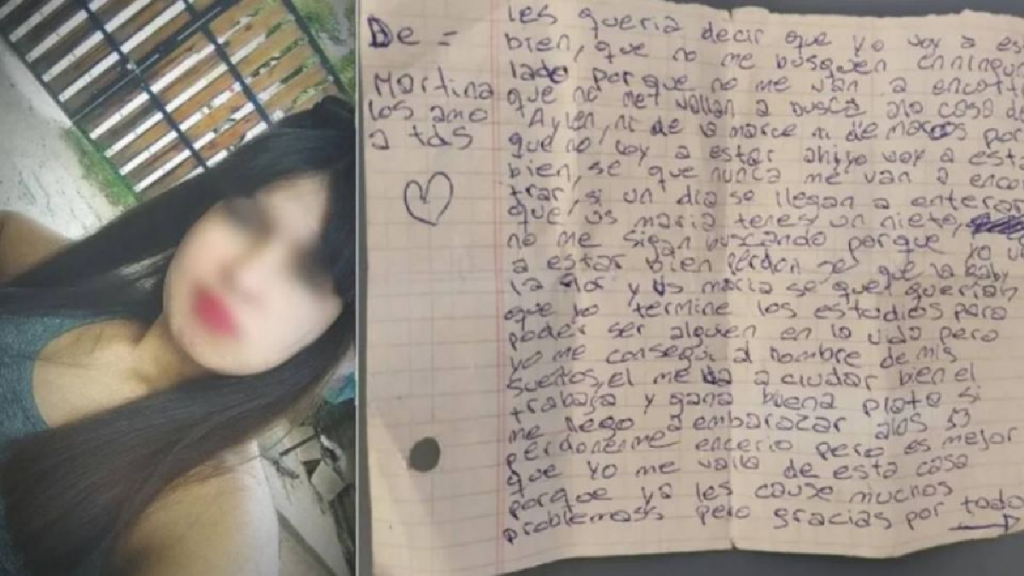 De =
Martina
los amo
a tds
les queria decir que yo voy a es
bien, que no me busquen en ningun
lado porque no me van a encot
que no me vallan a busca ala casa de
Aylen, ni de la marce ni de marcos por
que no voy a estar ahi yo voy a esta
bien, se que nunca me van a encon
trar, si un dia se llegan a enterar
que vos maria tenes un nieto,
no me sigan buscando porque yo
a estar bien perdon se que la baby
la flor y vos maria se que querian
que yo termine los estudios para
poder ser alguien en la vida pero
yo me consegui al hombre de mis
sueños, el me va a aiudar bien el
trabaja y gana buena plata si
me llego a embarazar alos
perdonenme encerio pero es mejor
que yo me valla de esta casa
porque ya les cause muchos
problemass pero gracias por todo